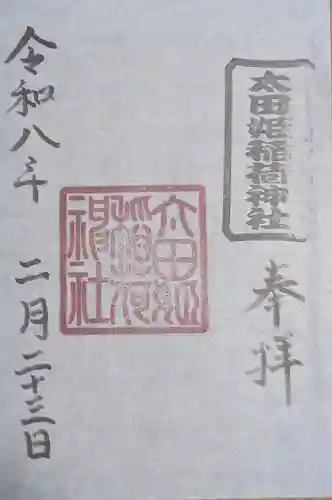 太田姫稲荷神社
奉拝
太田姫稲荷神社
令和八年 二月二十三日